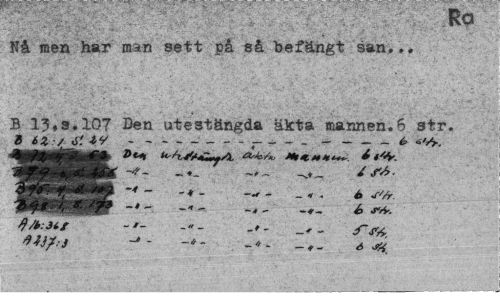 Ra
Nå men har man sett på så befängt san...
B 13,s.107 Den utestängda äkta mannen.6 str.
B 62:1, S. 24 - - - - - - - - - - - - - - - - 6 str.
Den utestängda äkta mannen. 6 str.
-"- -"- -"- -"- 6 str.
-"- -"- -"- -"- 6 str.
-"- -"- -"- -"- 6 str.
A16:368 -"- -"- -"- -"- 5 str.
A237:3 -"- -"- -"- -"- 6 str.